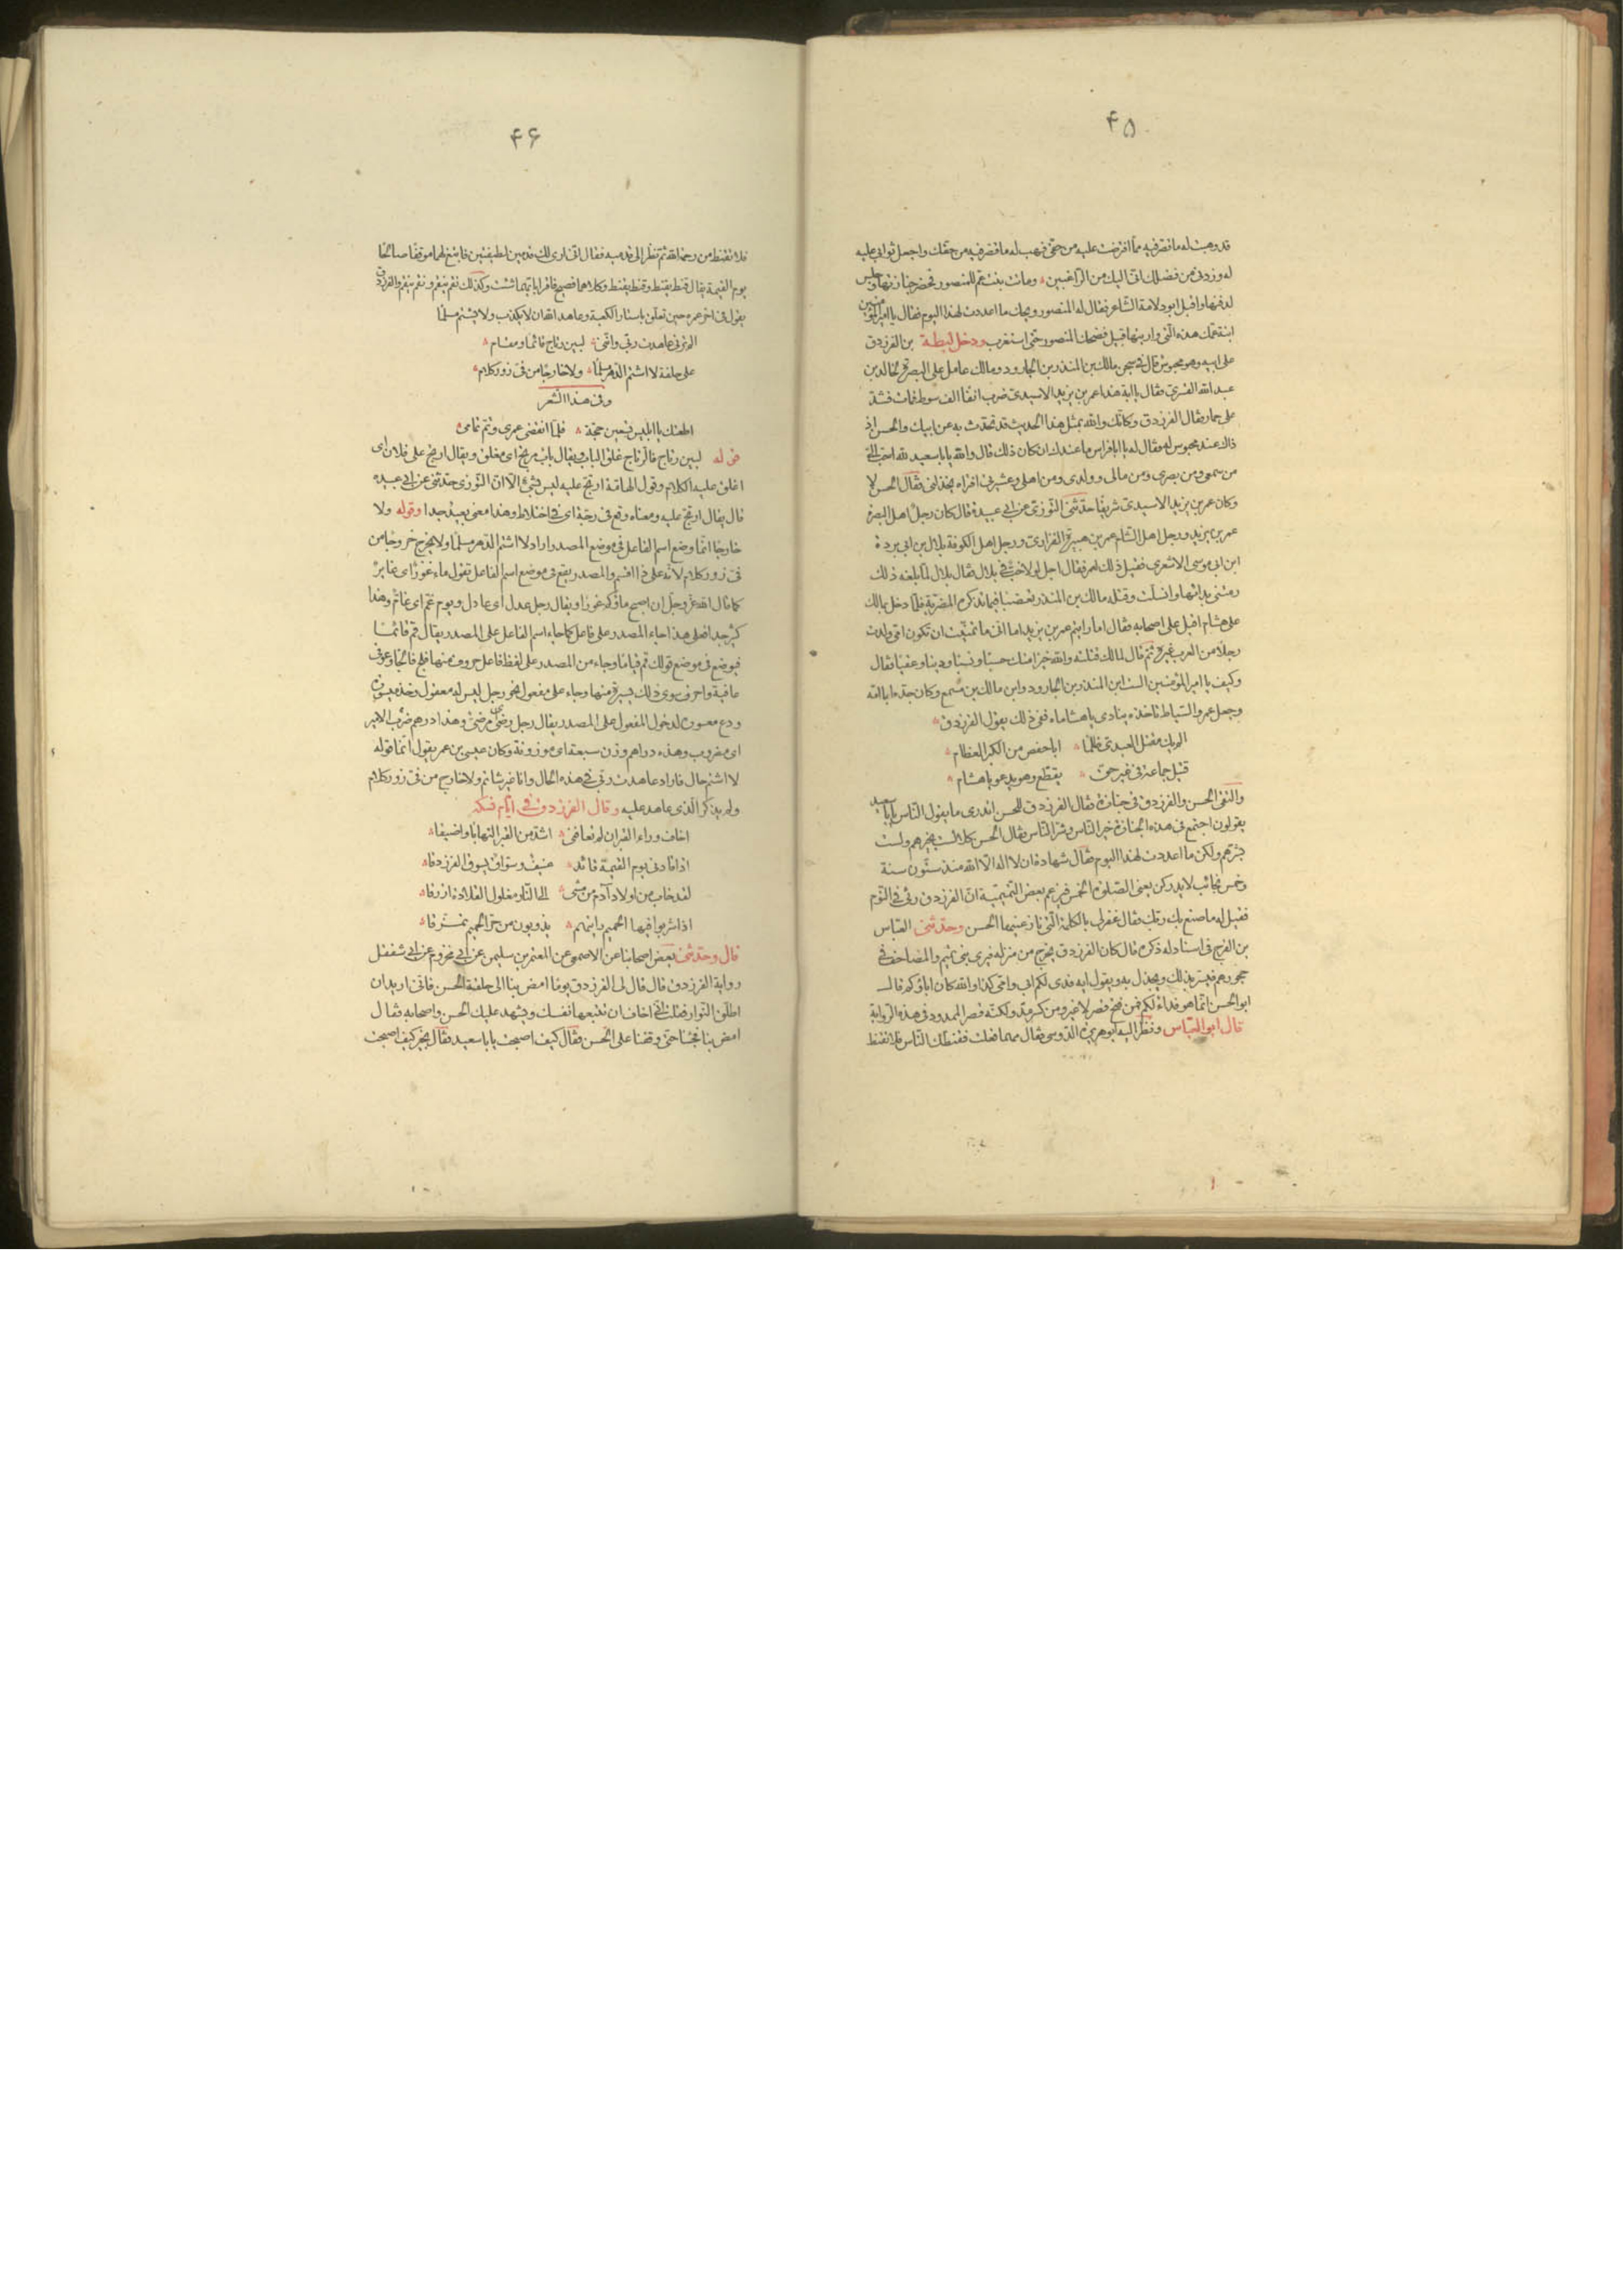 ۴۵
قد وهبت له ما قصر فيه مما افترضت عليه من حقى فهب له ما قصر فيه من حقك واجعل ثوابى عليه
له وزدنى من فضلك انى اليك من الراغبين وماتت بنت عم للمنصور فحضر جنازتها وجلس
لدفنها واقبل ابو دلامة الشاعر فقال له المنصور ويحك ما اعددت لهذا اليوم فقال يا امير المؤمنين
ابنة عمك هذه التى واريتها قبيل فضحك المنصور حتى استغرب ودخل لبطة بن الفرزدق
على ابيه وهو محبوس قال فى سجن مالك بن المنذر بن الجارود ومالك عامل على البصرة لخالد بن
عبد الله القسرى فقال يا ابة هذا عمر بن يزيد الاسيدى ضرب انفا الف سوط فمات فشد
على حمار فقال الفرزدق وكانك والله بمثل هذا الحديث قد تحدث به عن ابيك والحسن اذ
ذاك عند محبوس له فقال له يا ابا فراس ما عندك ان كان ذلك قال والله يا با سعيد لله احب الى
من سمعى ومن بصرى ومن مالى وولدى ومن اهلى وعشيرتى افتراه يخذلنى فقال الحسن لا
وكان عمر بن يزيد الاسيدى شريفا حدثنى التوزى عن ابى عبيدة قال كان رجل اهل البصرة
عمر بن يزيد ورجل اهل الشام عمر بن هبيرة الفزارى ورجل اهل الكوفة بلال بن ابى بردة
ابن ابى موسى الاشعرى فقيل ذلك لعمر فقال اجل لولا خب فى بلال فقال بلال لما بلغه ذلك
رمتنى بدائها وانسلت وقتله مالك بن المنذر تعصبا فيما تذكره المضرية فلما دخل مالك
على هشام اقبل على اصحابه فقال اما رايتم عمر بن يزيد اما انى ما تمنيت ان تكون امى ولدت
رجلا من العرب غيره ثم قال لمالك قتلته والله خيرا منك حسبا ونسبا ودينا وعقبا فقال
وكيف يا امير المؤمنين الست ابن المنذر بن الجارود وابن مالك بن مسمع وكان جده ابا امه
وجعل عمر والسياط تاخذه ينادى يا هشاماه ففى ذلك يقول الفرزدق
الم يك مقتل العبدى ظلما ابا حفص من الكبر العظام
قتيل جماعة فى غير حق يقطع وهو يدعو يا هشام
والتقى الحسن والفرزدق فى جنازة فقال الفرزدق للحسن اتدرى ما يقول الناس يا با سعيد
يقولون اجتمع فى هذه الجنازة خير الناس وشر الناس فقال الحسن كلا لست بخيرهم ولست
بشرهم ولكن ما اعددت لهذا اليوم فقال شهادة ان لا اله الا الله منذ ستون سنة
وخمس نجائب لا يدركن يعنى الصلوة الخمس فيزعم بعض التميمية ان الفرزدق رئى فى النوم
فقيل له ما صنع بك ربك فقال غفر لى بالكلمة التى نازعنيها الحسن وحدثنى العباس
بن الفرج فى اسناد له ذكره قال كان الفرزدق يخرج من منزله فيرى بنى تميم والمصاحف فى
حجورهم فيسر بذلك ويجذل به ويقول ايه فدى لكم ابى وامى كذا والله كان اباؤكم قال
ابو الحسن انما هو فداء لكم فمن فتح قصر لا غير ومن كسر مد ولكنه قصر الممدود فى هذه الرواية
قال ابو العباس ونظر اليه ابو هريرة الدوسى فقال مهما فعلت فقنطك الناس فلا تقنط
۴۶
فلا تقنط من رحمة الله ثم نظر الى قدميه فقال انى ارى لك قدمين لطيفتين فابتغ لهما موقفا صالحا
يوم القيمة يقال قنط يقنط وقنط يقنط وكلاهما فصيح فاقرا بايتهما شئت وكذلك نقم ينقم ونقم ينقم والفرزدق
يقول فى اخر عمره حين تعلق باستار الكعبة وعاهد الله ان لا يكذب ولا يشتم مسلما
الم ترنى عاهدت ربى واننى لبين رتاج قائما ومقام
على حلفة لا اشتم الدهر مسلما ولا خارجا من فى زور كلام
وفى هذا الشعر
اطعتك يا ابليس تسعين حجة فلما انقضى عمرى وتم تمامى
قوله لبين رتاج فالرتاج غلق الباب ويقال باب مرتج اى مغلق ويقال ارتج على فلان اى
اغلق عليه الكلام وقول العامة ارتج عليه ليس بشئ الا ان التوزى حدثنى عن ابى عبيدة
قال يقال ارتج عليه ومعناه وقع فى رجة اى فى اختلاط وهذا معنى بعيد جدا وقوله ولا
خارجا انما وضع اسم الفاعل فى موضع المصدر اراد لا اشتم الدهر مسلما ولا يخرج خروجا من
فى زور كلام لانه على ذا اقسم والمصدر يقع فى موضع اسم الفاعل تقول ماء غور اى غاير
كما قال الله عز وجل ان اصبح ماؤكم غورا ويقال رجل عدل اى عادل ويوم غم اى غام وهذا
كثير جدا فعلى هذا جاء المصدر على فاعل كما جاء اسم الفاعل على المصدر يقال قم قائما
فيوضع فى موضع قولك قم قياما وجاء من المصدر على لفظ فاعل حروف منها فلج فالجا وعوفى
عافية واحرف سوى ذلك يسيرة منها وجاء على مفعول نحو رجل ليس له معقول وخذ ميسوره
ودع معسوره لدخول المفعول على المصدر يقال رجل رضى اى مرضى وهذا درهم ضرب الامير
اى مضروب وهذه دراهم وزن سبعة اى موزونة وكان عيسى بن عمر يقول انما قوله
لا اشتم حال فاراد عاهدت ربى فى هذه الحال وانا غير شاتم ولا خارج من فى زور كلام
ولم يذكر الذى عاهد عليه وقال الفرزدق فى ايام نسكه
اخاف وراء القبر ان لم تعافنى اشد من القبر التهابا واضيقا
اذا قادنى يوم القيمة قائد عنيف وسواق يسوق الفرزدقا
لقد خاب من اولاد آدم من مشى الى النار مغلول القلادة ازرقا
اذا شربوا فيها الحميم رايتهم يذوبون من حر الحميم تمزقا
قال وحدثنى بعض اصحابنا عن الاصمعى عن المعتمر بن سليمن عن ابى مخزوم عن ابى شفقل
رواية الفرزدق قال قال لى الفرزدق يوما امض بنا الى حلقة الحسن فانى اريد ان
اطلق النوار فقلت انى اخاف ان تتبعها نفسك ويشهد عليك الحسن واصحابه فقال
امض بنا فجئنا حتى وقفنا على الحسن فقال كيف اصبحت يا با سعيد فقال بخير كيف اصبحت